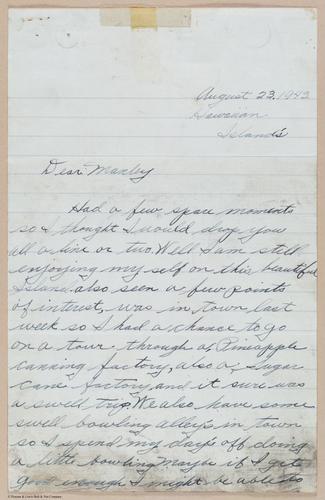 August 23, 1942
Hawaiian
Islands
Dear Manley
Had a few spare moments
so I thought I would drop you
all a line or two. Well I am still
enjoying my self on this beautiful
Island. also seen a few points
of interest, was in town last
week so I had a chance to go
on a tour through a Pineapple
canning factory, also a Sugar
cane factory, and it sure was
a swell trip. We also have some
swell bowling alleys in town
so I spend my days off doing
a little bowling. Maybe if I get
good enough I might be able to